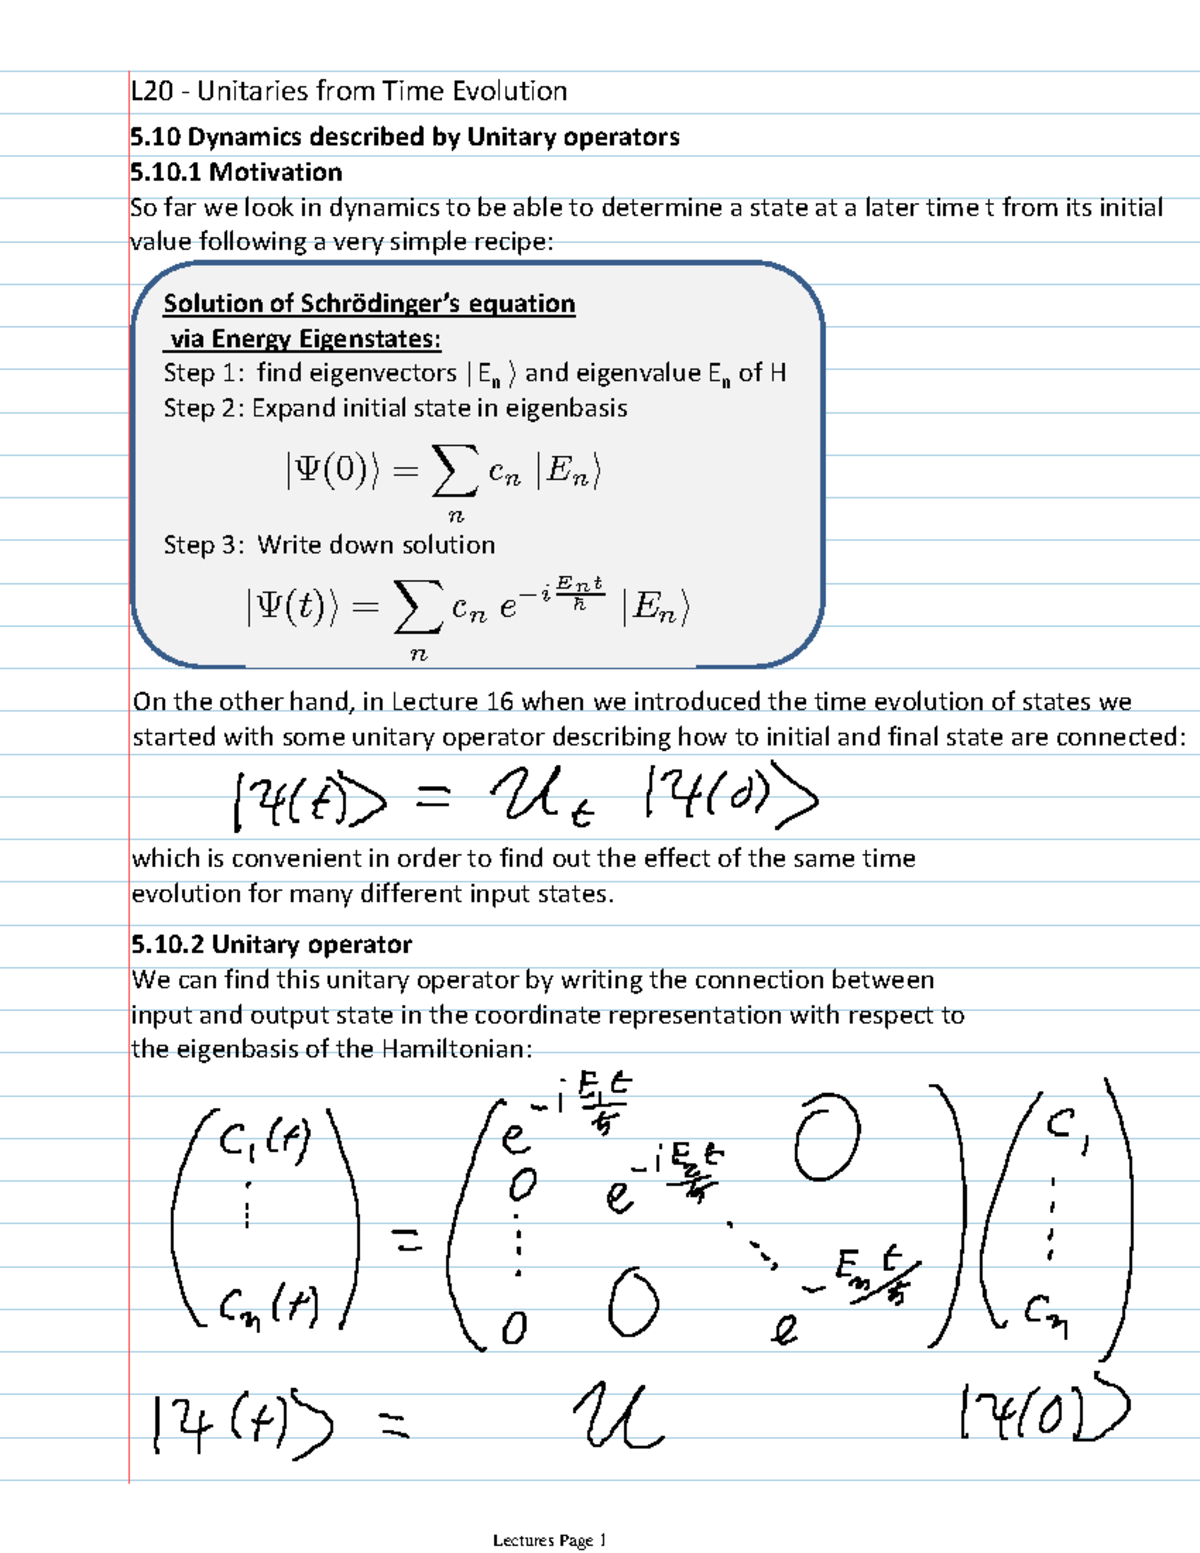 L20 - Unitaries from Time Evolution
5.10 Dynamics described by Unitary operators
5.10.1 Motivation
So far we look in dynamics to be able to determine a state at a later time t from its initial
value following a very simple recipe:
Solution of Schrödinger's equation
via Energy Eigenstates:
Step 1: find eigenvectors |Eₙ ⟩ and eigenvalue Eₙ of H
Step 2: Expand initial state in eigenbasis
|Ψ(0)⟩ = ∑ₙ cₙ |Eₙ⟩
Step 3: Write down solution
|Ψ(t)⟩ = ∑ₙ cₙ e^{-i Eₙt/ħ} |Eₙ⟩
On the other hand, in Lecture 16 when we introduced the time evolution of states we
started with some unitary operator describing how to initial and final state are connected:
|Ψ(t)⟩ = U_t |Ψ(0)⟩
which is convenient in order to find out the effect of the same time
evolution for many different input states.
5.10.2 Unitary operator
We can find this unitary operator by writing the connection between
input and output state in the coordinate representation with respect to
the eigenbasis of the Hamiltonian:
( c₁(t) ⋮ cₙ(t) ) = ( e^{-i E₁t/ħ} 0 ⋮ 0 e^{-i E₂t/ħ} ⋱ 0 0 e^{-Eₙt/ħ} ) ( c₁ ⋮ cₙ )
|Ψ(t)⟩ = U |Ψ(0)⟩
Lectures Page 1